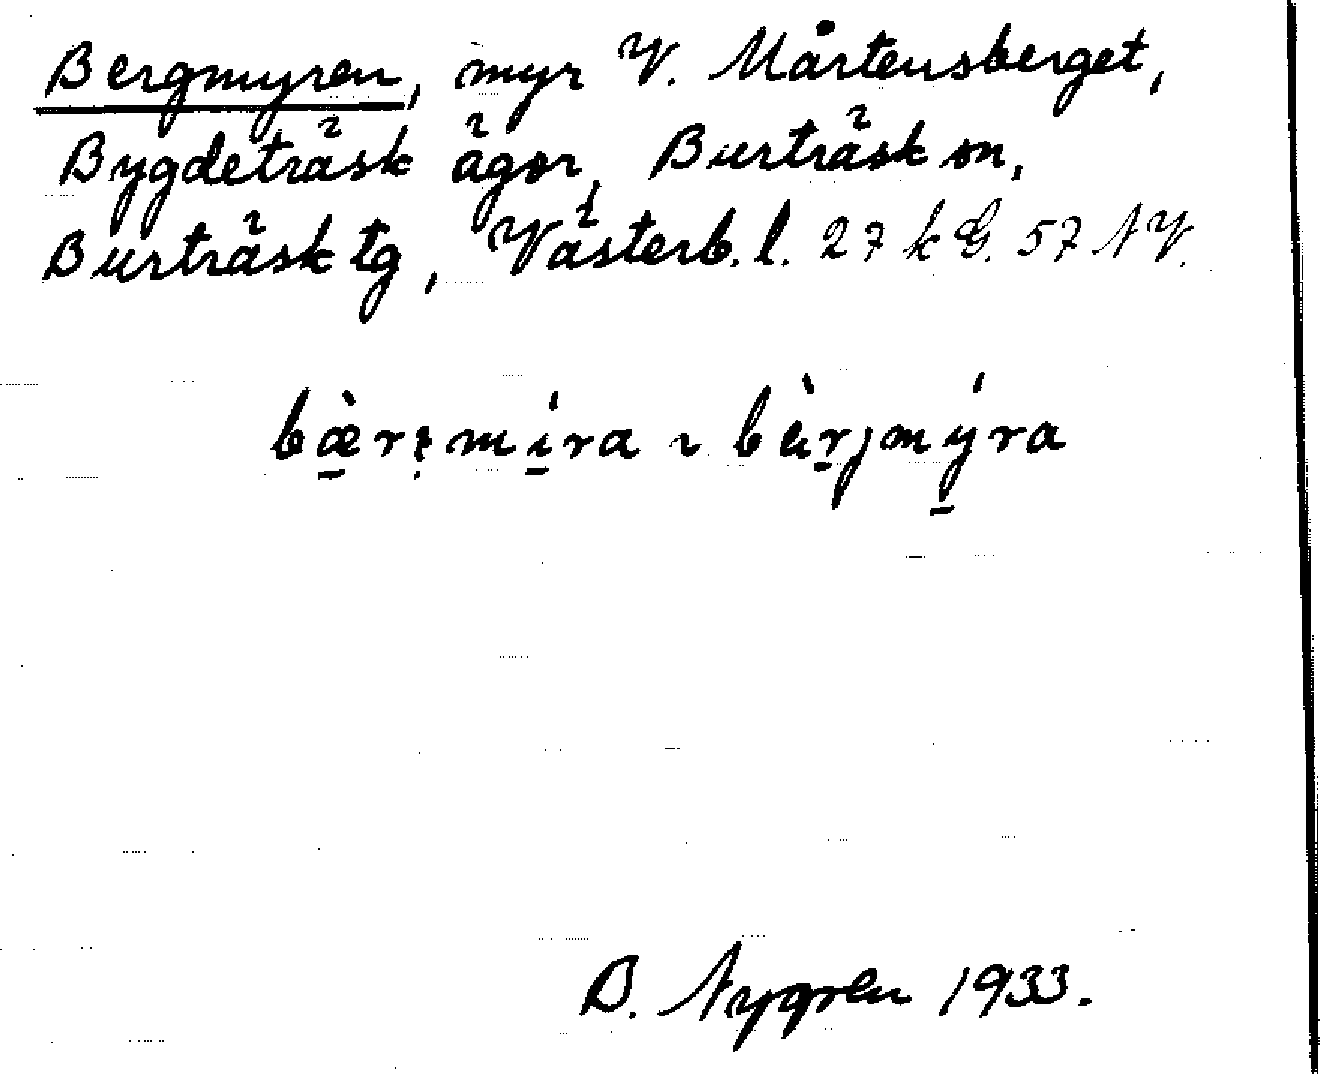 Bergmyren, myr V. Mårtensberget,
Bygdeträsk ägor, Burträsk sn,
Burträsk tg, Västerb. l. 27 k G. 57 NV.
bæ̀rmíra ~ bæ̀rjmýra
B. Nygren 1933.